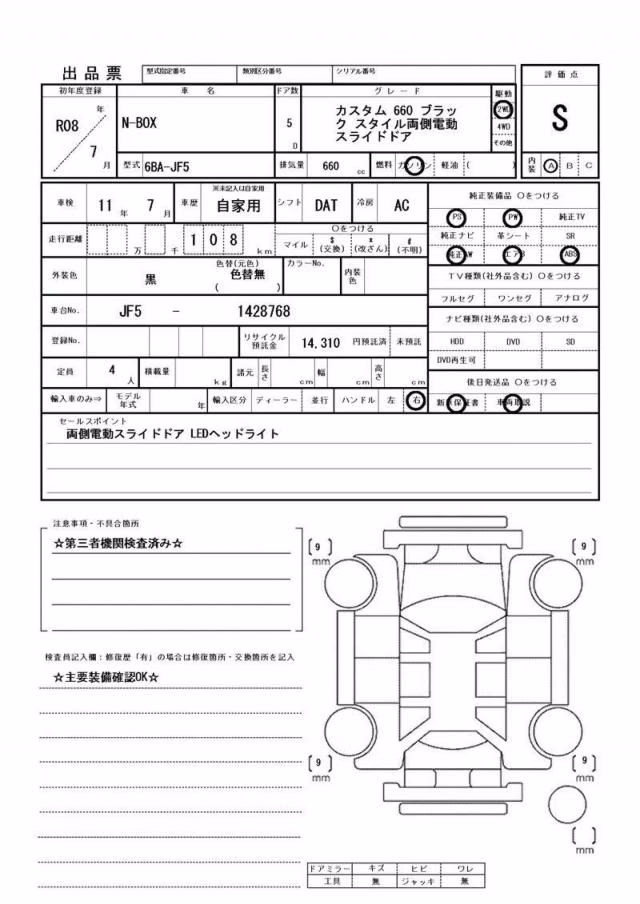 出品票
型式指定番号 類別区分番号 シリアル番号
評価点
初年度登録 車名 ドア数 グレード 駆動
R08 年 7 月
N-BOX
5 D
カスタム 660 ブラッ
ク スタイル両側電動
スライドドア
2WD
4WD
その他
S
型式 6BA-JF5 排気量 660 cc 燃料 ガソリン 軽油 ( )
内装 A B C
車検 11 年 7 月 車歴 ※未記入は自家用 自家用 シフト DAT 冷房 AC
純正装備品 〇をつける
PS PW 純正TV
走行距離 万 千 1 0 8 km
〇をつける
マイル $ (交換) * (改ざん) # (不明)
純正ナビ 革シート SR
純正AW エアB ABS
外装色 黒 色替(元色) 色替無 ( ) カラーNo. 内装色
TV種類(社外品含む) 〇をつける
フルセグ ワンセグ アナログ
車台No. JF5 - 1428768
ナビ種類(社外品含む) 〇をつける
登録No. リサイクル預託金 14,310 円預託済 未預託
HDD DVD SD
DVD再生可
定員 4 人 積載量 kg 諸元 長さ cm 幅 cm 高さ cm
後日発送品 〇をつける
輸入車のみ⇒ モデル年式 年 輸入区分 ディーラー 並行 ハンドル 左 右
新車保証書 車両取説
セールスポイント
両側電動スライドドア LEDヘッドライト
注意事項・不具合箇所
☆第三者機関検査済み☆
検査員記入欄：修復歴「有」の場合は修復箇所・交換箇所を記入
☆主要装備確認OK☆
[ 9 ] mm
[ 9 ] mm
[ 9 ] mm
[ 9 ] mm
[ ] mm
ドアミラー キズ ヒビ ワレ
工具 無 ジャッキ 無